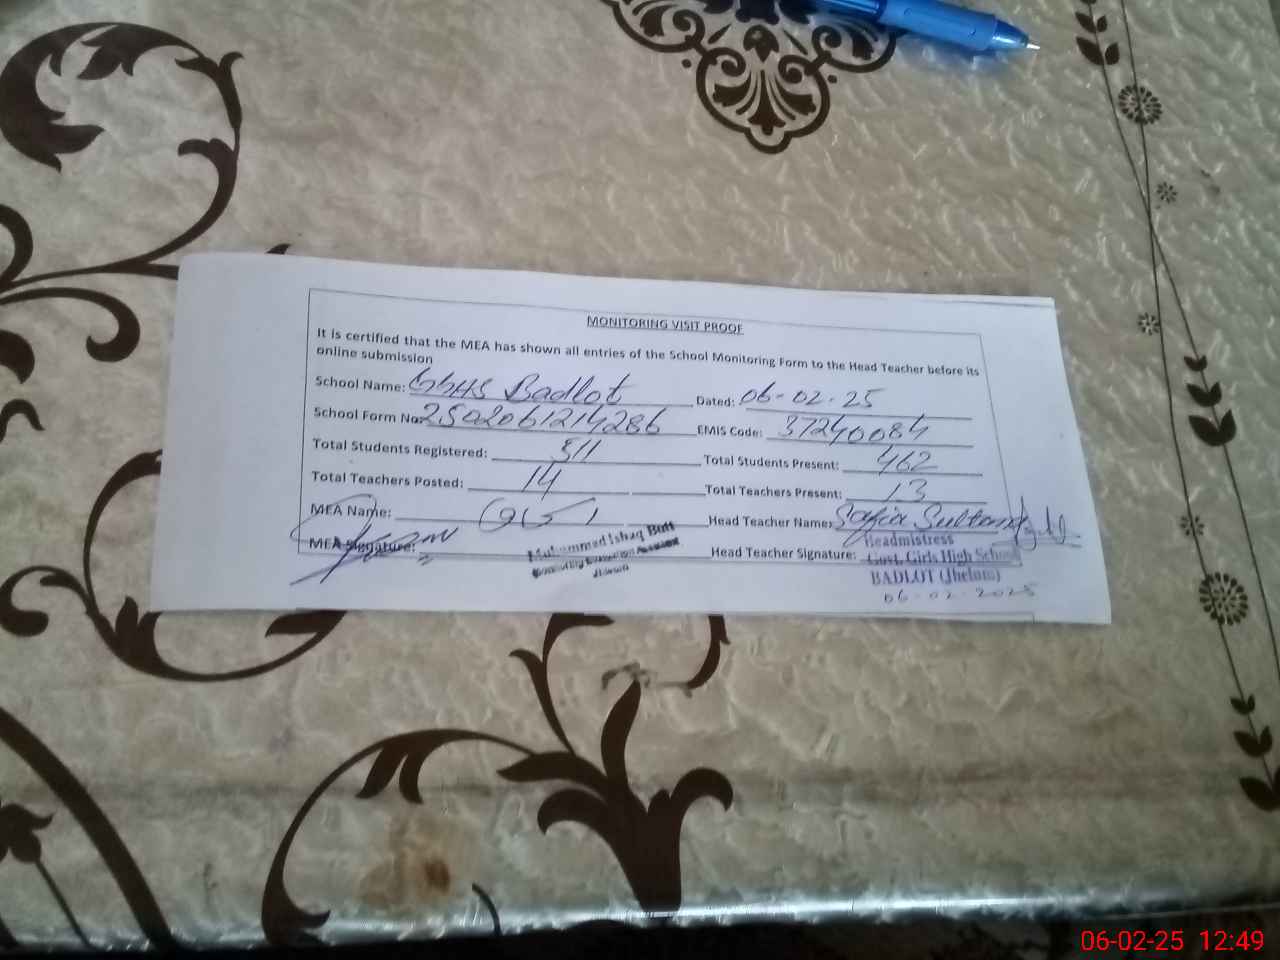 MONITORING VISIT PROOF
It is certified that the MEA has shown all entries of the School Monitoring Form to the Head Teacher before its
online submission
School Name: GGHS Badlot Dated: 06-02-25
School Form No: 2502061214286 EMIS Code: 37240084
Total Students Registered: 511 Total Students Present: 462
Total Teachers Posted: 14 Total Teachers Present: 13
MEA Name: Head Teacher Name: Safia Sultana
MEA Signature: Muhammed Ishaq Butt Head Teacher Signature: Headmistress
Govt. Girls High School
Jhelum BADLOT (Jhelum)
06-02-2025
06-02-25 12:49